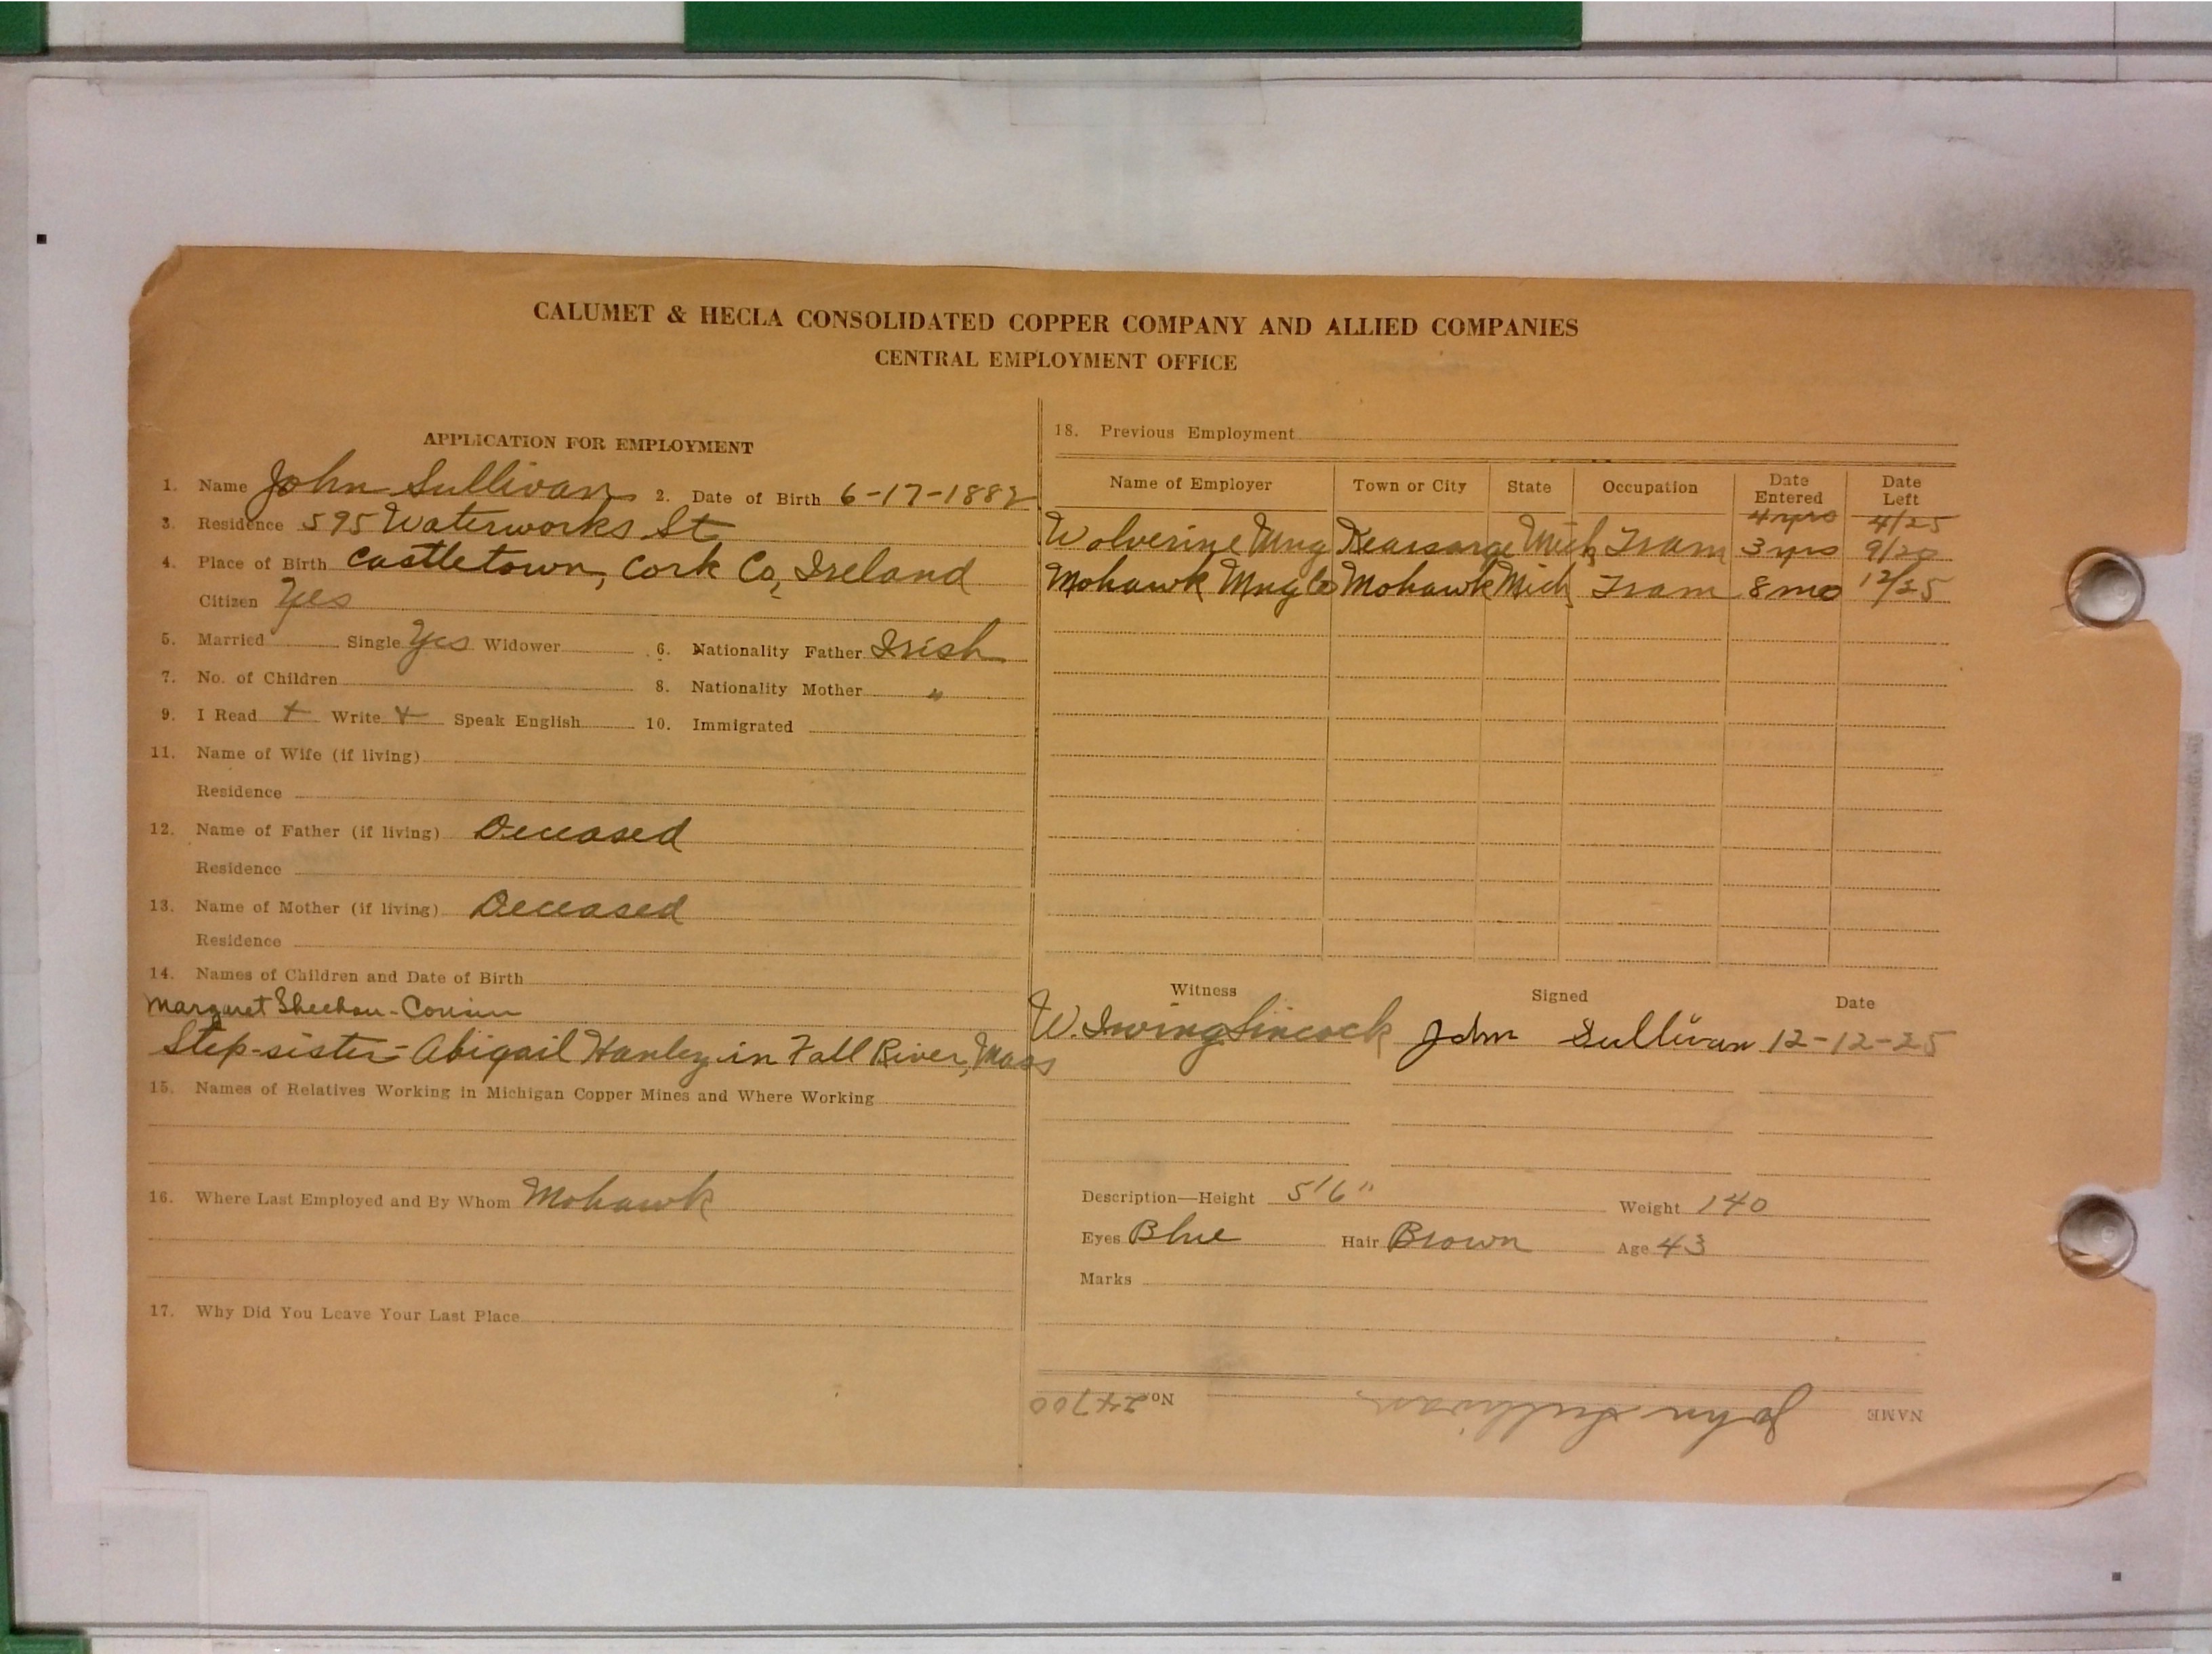 CALUMET & HECLA CONSOLIDATED COPPER COMPANY AND ALLIED COMPANIES
CENTRAL EMPLOYMENT OFFICE
APPLICATION FOR EMPLOYMENT
1. Name John Sullivan 2. Date of Birth 6-17-1882
3. Residence 595 Waterworks St
4. Place of Birth Castletown, Cork Co, Ireland
Citizen Yes
5. Married Single Yes Widower 6. Nationality Father Irish
7. No. of Children 8. Nationality Mother "
9. I Read + Write + Speak English 10. Immigrated
11. Name of Wife (if living)
Residence
12. Name of Father (if living) Deceased
Residence
13. Name of Mother (if living) Deceased
Residence
14. Names of Children and Date of Birth
Margaret Sheehan - Cousin
Step-sister - Abigail Hanley in Fall River, Mass
15. Names of Relatives Working in Michigan Copper Mines and Where Working
16. Where Last Employed and By Whom Mohawk
17. Why Did You Leave Your Last Place
18. Previous Employment
Name of Employer Town or City State Occupation Date Entered Date Left
4 yrs 4/25
Wolverine Mng Kearsarge Mich Tram 3 yrs 9/20
Mohawk Mng Co Mohawk Mich Tram 8 mo 12/25
Witness Signed Date
W. Irwing Sincock John Sullivan 12-12-25
Description—Height 5'6" Weight 140
Eyes Blue Hair Brown Age 43
Marks
NAME John Sullivan No. 24700